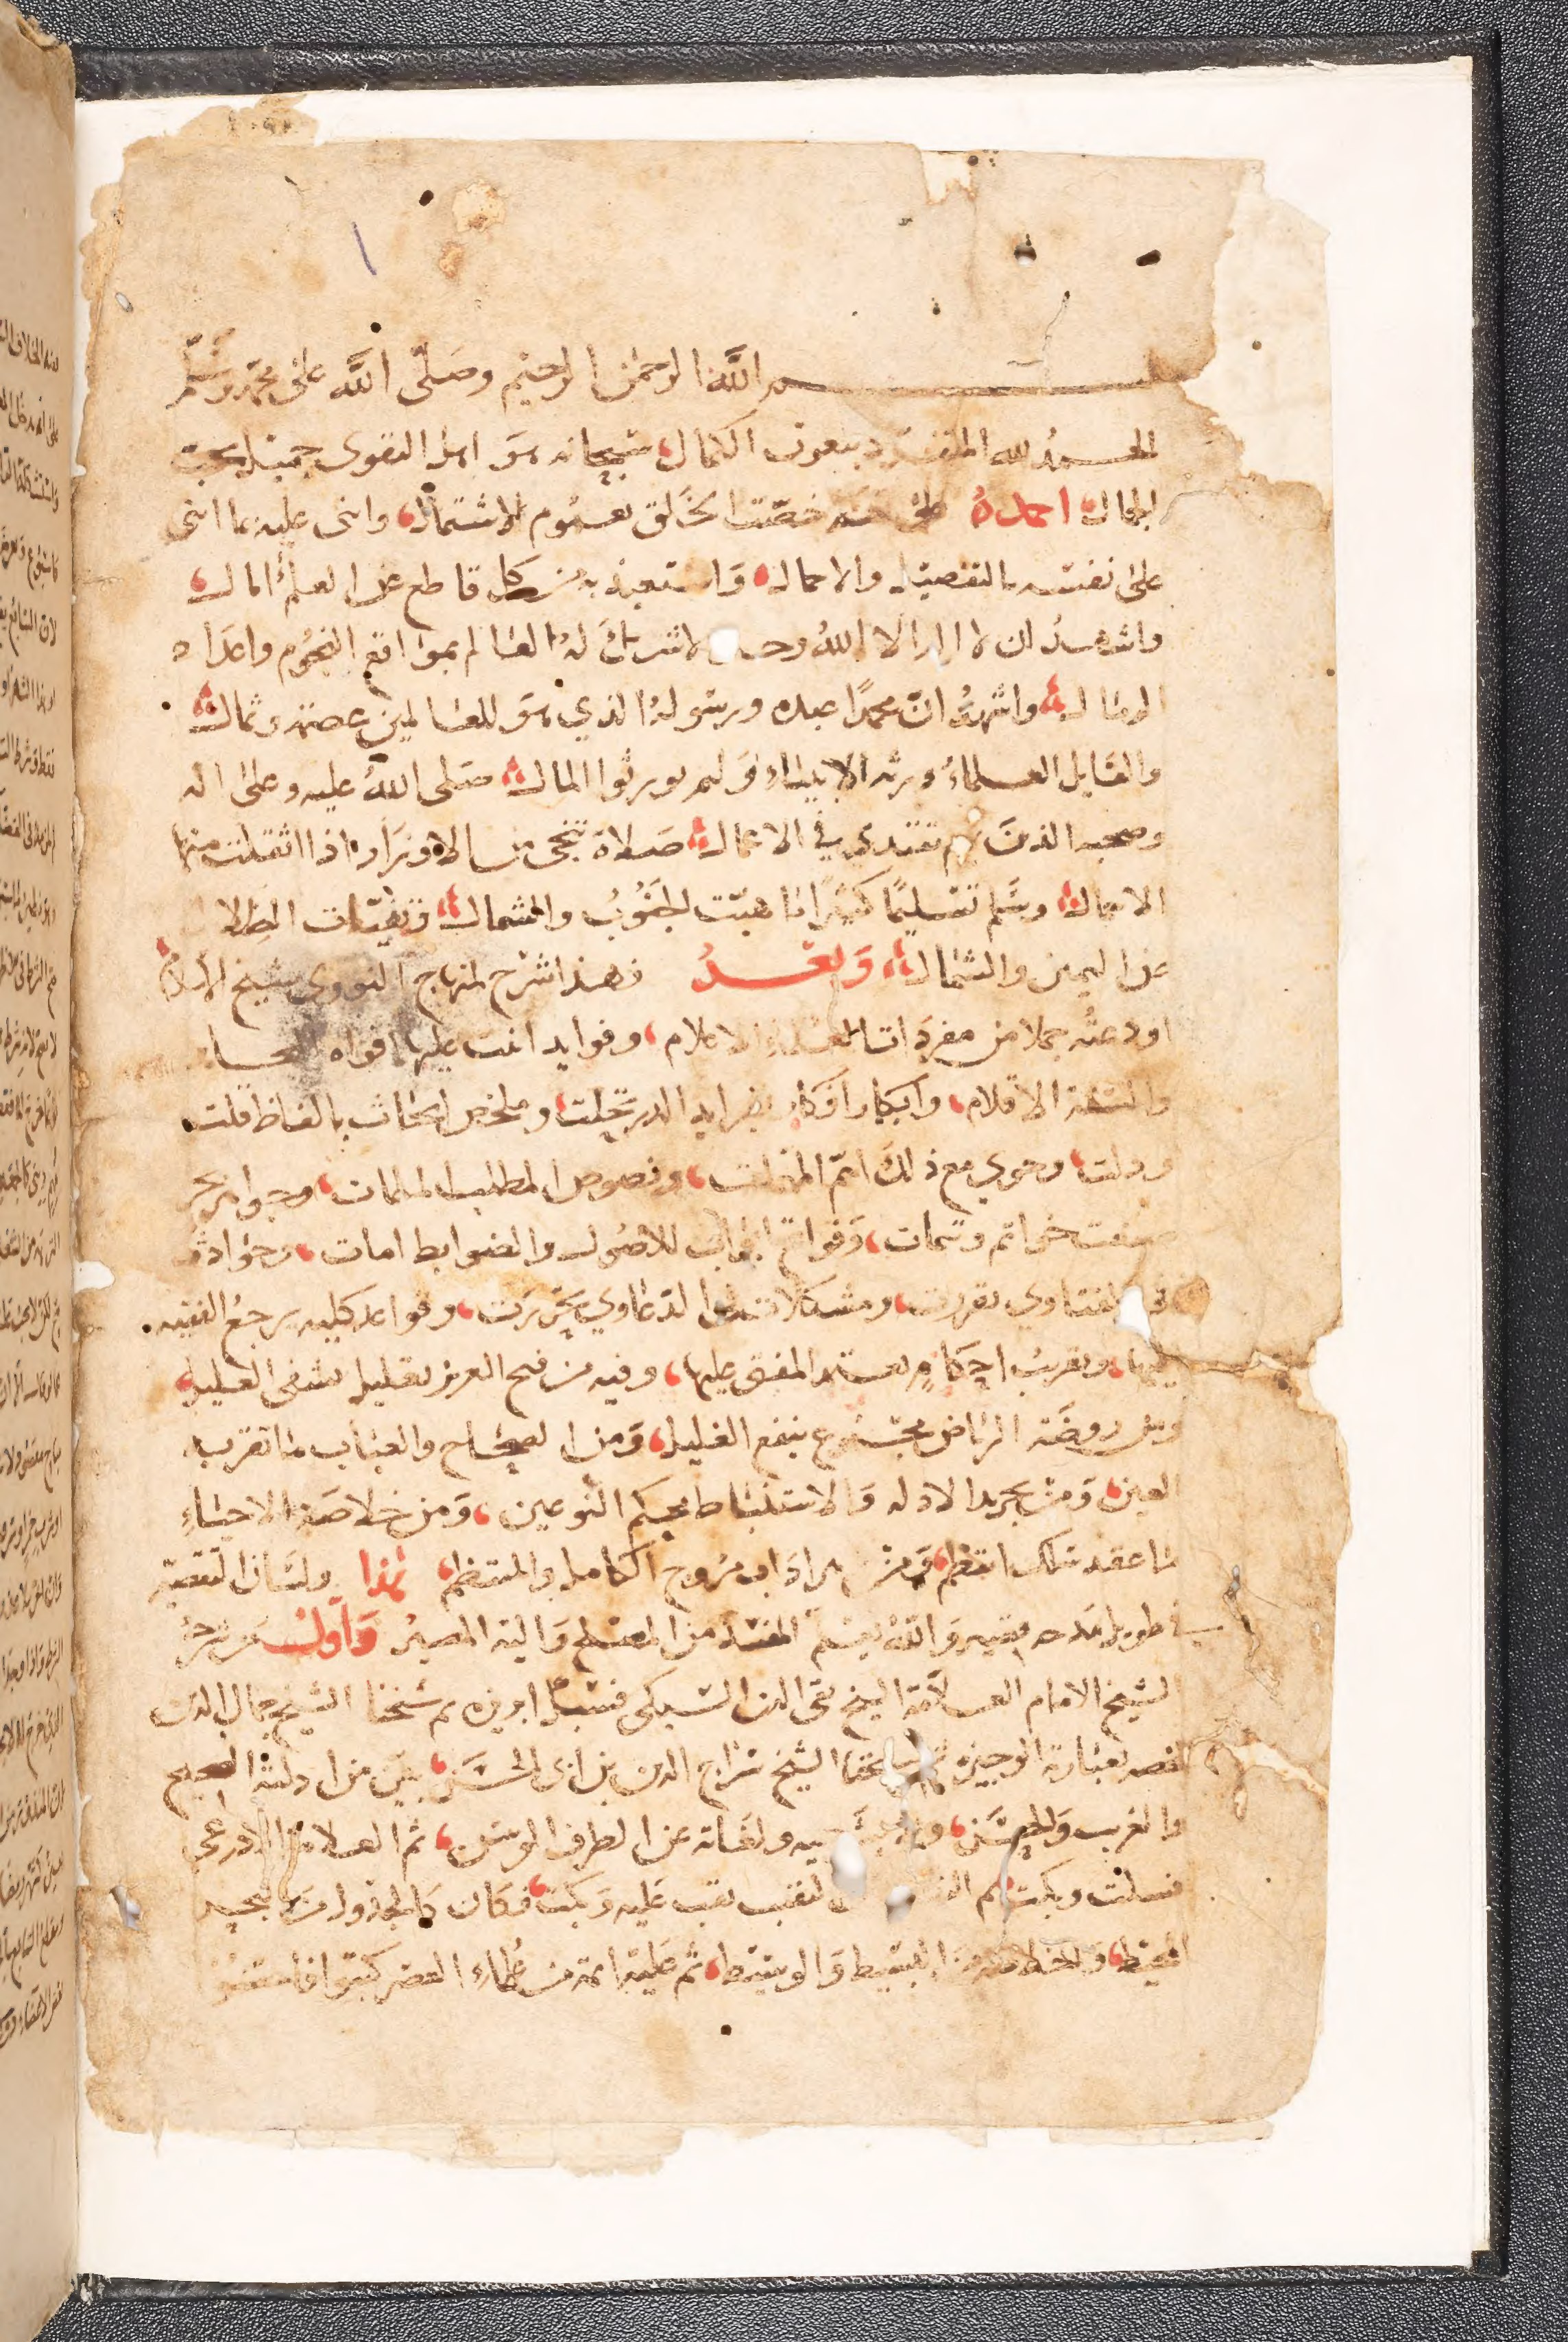 بسم الله الرحمن الرحيم وصلى الله على محمد وسلم
الحمد لله المتفرد بنعوت الكمال سبحانه هو اهل التقوى جميل يحب
الجمال احمده على خصت الخلق بعموم الاشتمال واثنى عليه بما اثنى
على نفسه بالتفصيل والاجمال واستعيذ به من كل قاطع عن العلم المال
واشهد ان لا اله الا الله وحده لا شريك له العالم بمواقع النجوم واعداد
الرمال واشهد ان محمدا عبده ورسوله الذي هو للعالمين عصمة وثمال
والقايل العلماء ورثة الانبياء ولم يورثوا المال صلى الله عليه وعلى اله
وصحبه الذين بهم نقتدي في الاعمال صلاة تنجى من الاوزار اذا اثقلت منها
الاحمال وسلم تسليما كثيرا ما هبت الجنوب والشمال وتفيات الظلال
عن اليمين والشمال وبعد فهذا شرح لمنهاج النووي شيخ الاسلام
اودعته جملا من مفردات العلماء الاعلام وفوايد اثنت عليها افواه المحابر
والسنة الاقلام وابكار افكار بفرايد الدر تحلت وملخص ابحاث بالفاظ قلت
ودلت وحوى مع ذلك اتم المهمات ونصوص المطلب الملمات وجواهر بحر
خواتم وتتمات وفواتح ابواب للاصول والضوابط امات وحوادث
في الفتاوي تقررت ومشكلات الدعاوي تحررت وقواعد كلية يرجع الفقيه
اليها وتقريب احكام يعتمد المفتى عليها وفيه من فتح العزيز تعليل يشفى العليل
ومن روضة الرياض مجموع ينفع الغليل ومن الصحاح والعباب ما تقر به
العين ومن تجريد الادلة والاستنباط محكم النوعين ومن خلاصة الاحياء
ما عقد سلك انتظم ومن مروج الكامل والمنتظم هذا ولسان التقصير
في طويل مدحه قصير والله يعلم المفسد من المصلح واليه المصير واول من شرحه
الشيخ الامام العلامة الشيخ تقى الدين السبكى شيخنا الشيخ جمال الدين
بعبارة الوجيزة الشيخ سراج الدين بن ابى الحسن بين من ادلته الصحيح
والغريب والحسن ولغاته عن الطرف الوسن ثم العلامة الاذرعي
فسلت وبكت ثم لنقب نقب عليه وبكت فكان كالجدول من البحر
المحيط والخلاصة من البسيط والوسيط ثم عليه ائمة من علماء العصر كتبوا